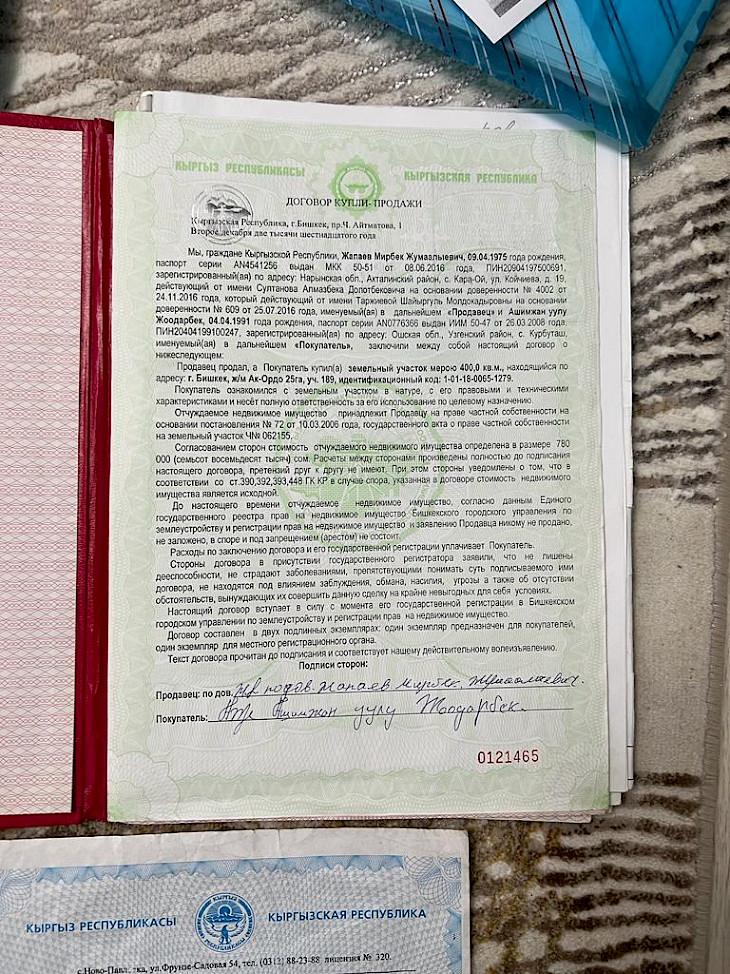 КЫРГЫЗ РЕСПУБЛИКАСЫ КЫРГЫЗСКАЯ РЕСПУБЛИКА
ДОГОВОР КУПЛИ- ПРОДАЖИ
Кыргызская Республика, г.Бишкек, пр.Ч. Айтматова, 1
Второе декабря две тысячи шестнадцатого года
Мы, граждане Кыргызской Республики, Жапаев Мирбек Жумаалыевич, 09.04.1975 года рождения,
паспорт серии AN4541256 выдан МКК 50-51 от 08.06.2016 года, ПИН20904197500691,
зарегистрированный(ая) по адресу: Нарынская обл., Акталинский район, с. Кара-Ой, ул. Койчиева, д. 19,
действующий от имени Султанова Алмазбека Долотбековича на основании доверенности № 4002 от
24.11.2016 года, который действующий от имени Таржиевой Шайыргуль Молдокадыровны на основании
доверенности № 609 от 25.07.2016 года, именуемый(ая) в дальнейшем «Продавец» и Ашимжан уулу
Жоодарбек, 04.04.1991 года рождения, паспорт серии AN0776366 выдан ИИМ 50-47 от 26.03.2008 года,
ПИН20404199100247, зарегистрированный(ая) по адресу: Ошская обл., Узгенский район, с. Курбуташ,
именуемый(ая) в дальнейшем «Покупатель», заключили между собой настоящий договор о
нижеследующем:
Продавец продал, а Покупатель купил(а) земельный участок мерою 400,0 кв.м., находящийся по
адресу: г. Бишкек, ж/м Ак-Ордо 25га, уч. 189, идентификационный код: 1-01-18-0065-1279.
Покупатель ознакомился с земельным участком в натуре, с его правовыми и техническими
характеристиками и несёт полную ответственность за его использование по целевому назначению.
Отчуждаемое недвижимое имущество принадлежит Продавцу на праве частной собственности на
основании постановления № 72 от 10.03.2006 года, государственного акта о праве частной собственности
на земельный участок Ч№ 062155.
Согласованием сторон стоимость отчуждаемого недвижимого имущества определена в размере 780
000 (Семьсот восемьдесят тысяч) сом. Расчеты между сторонами произведены полностью до подписания
настоящего договора, претензий друг к другу не имеют. При этом стороны уведомлены о том, что в
соответствии со ст.390,392,393,448 ГК КР в случае спора, указанная в договоре стоимость недвижимого
имущества является исходной.
До настоящего времени отчуждаемое недвижимое имущество, согласно данным Единого
государственного реестра прав на недвижимое имущество Бишкекского городского управления по
землеустройству и регистрации прав на недвижимое имущество и заявлению Продавца никому не продано,
не заложено, в споре и под запрещением (арестом) не состоит.
Расходы по заключению договора и его государственной регистрации уплачивает Покупатель.
Стороны договора в присутствии государственного регистратора заявили, что не лишены
дееспособности, не страдают заболеваниями, препятствующими понимать суть подписываемого ими
договора, не находятся под влиянием заблуждения, обмана, насилия, угрозы а также об отсутствии
обстоятельств, вынуждающих их совершить данную сделку на крайне невыгодных для себя условиях.
Настоящий договор вступает в силу с момента его государственной регистрации в Бишкекском
городском управлении по землеустройству и регистрации прав на недвижимое имущество.
Договор составлен в двух подлинных экземплярах: один экземпляр предназначен для покупателей,
один экземпляр для местного регистрационного органа.
Текст договора прочитан до подписания и соответствует нашему действительному волеизъявлению.
Подписи сторон:
Продавец: по дов. по дов. Жапаев Мирбек Жумаалиевич.
Покупатель: Ашимжан уулу Жоодарбек.
0121465
КЫРГЫЗ РЕСПУБЛИКАСЫ КЫРГЫЗСКАЯ РЕСПУБЛИКА
с.Ново-Павловка, ул.Фрунзе-Садовая 54, тел. (0312) 88-23-88 лицензия № 320.